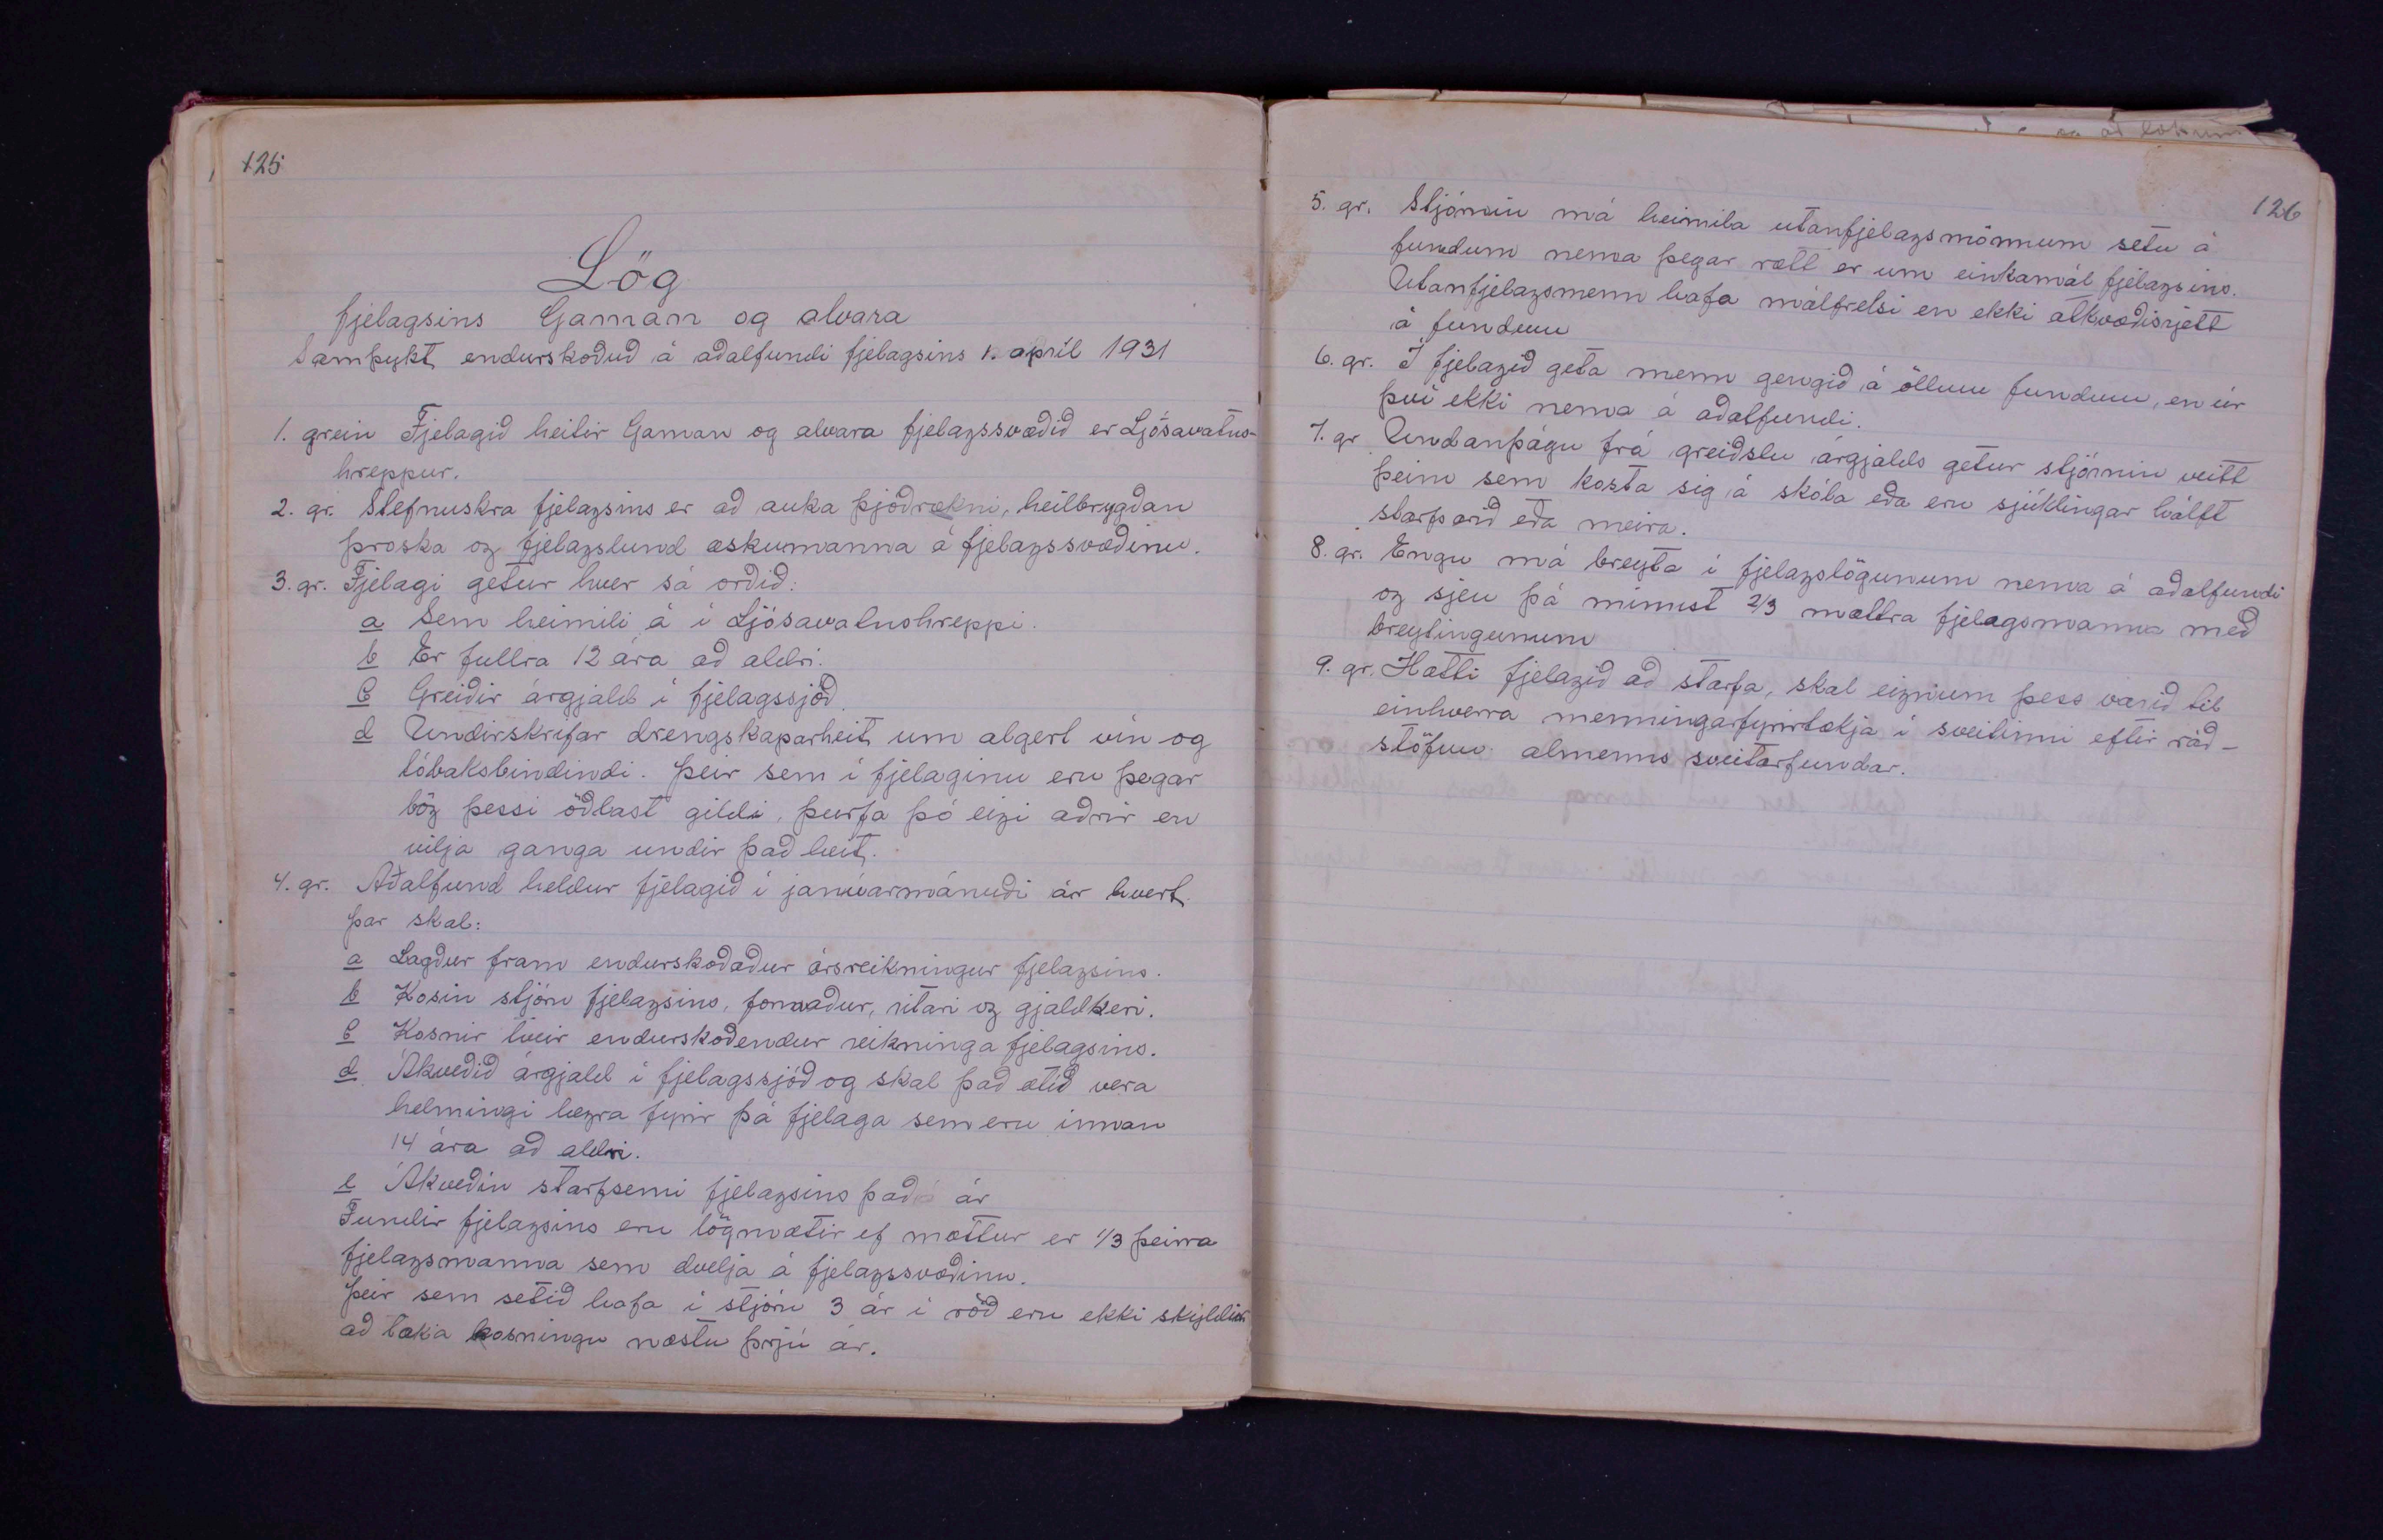 125
Lög
fjelagsins Gaman og alvara
Samþykt, endurskoðuð á aðalfundi fjelagsins 1. apríl 1931
1. grein Fjelagið heitir Gaman og alvara fjelagssvæðið er Ljósavatns-
hreppur.
2. gr. Stefnuskra fjelagsins er að auka þjóðrækni, heilbrygðan
þroska og fjelagslund æskumanna á fjelagssvæðinu.
3. gr. Fjelagi getur hver sá orðið:
a Sem heimili á í Ljósavatnshreppi.
b Er fullra 12 ára að aldri.
c Greiðir árgjald í fjelagssjóð.
d Undirskrifar drengskaparheit um algert vín og
tóbaksbindindi. Þeir sem í fjelaginu eru þegar
lög þessi öðlast gildi, þurfa þó eigi aðrir en
vilja ganga undir það heit.
4. gr. Aðalfund heldur fjelagið í janúarmánuði ár hvert.
Þar skal:
a Lagður fram endurskoðaður ársreikningur fjelagsins.
b Kosin stjórn fjelagsins, formaður, ritari og gjaldkeri.
c Kosnir tveir endurskoðendur reikninga fjelagsins.
d Ákveðið árgjald í fjelagssjóð og skal það ætíð vera
helmingi lægra fyrir þá fjelaga sem eru innan
14 ára að aldri.
e Ákveðin starfsemi fjelagsins það ár
Fundir fjelagsins eru lögmætir ef mættur er 1/3 þeirra
fjelagsmanna sem dvelja á fjelagssvæðinu.
Þeir sem setið hafa í stjórn 3 ár í röð eru ekki skyldir
að taka kosningu næstu þrjú ár.
126
5. gr. Stjórnin má heimila utanfjelagsmönnum setu á
fundum nema þegar rætt er um einkamál fjelagsins.
Utanfjelagsmenn hafa málfrelsi en ekki atkvæðisrjett
á fundum
6. gr. Í fjelagið geta menn gengið á öllum fundum, en úr
því ekki nema á aðalfundi.
7. gr Undanþágu frá greiðslu árgjalds getur stjórnin veitt
þeim sem kosta sig á skóla eða eru sjúklingar hálft
starfsárið eða meira.
8. gr. Engu má breyta í fjelagslögunum nema á aðalfundi
og sjeu þá minnst 2/3 mættra fjelagsmanna með
breytingunum
9. gr. Hætti fjelagið að starfa, skal eignum þess varið til
einhverra menningarfyrirtækja í sveitinni eftir ráð-
stöfun almenns sveitarfundar.